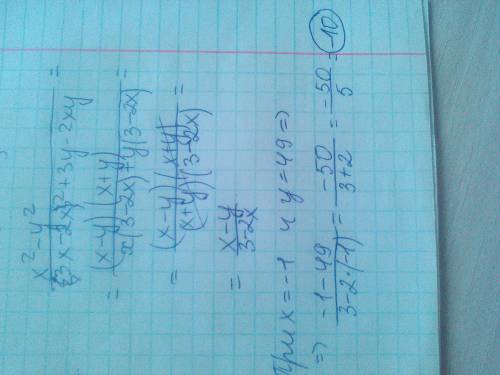 x²-y² / 3x-2x²+3y-2xy =
= (x-y)(x+y) / x(3-2x)+y(3-2x) =
= (x-y)(x+y) / (x+y)(3-2x) =
= x-y / 3-2x
При x=-1 и y=49 =>
=> -1-49 / 3-2·(-1) = -50 / 3+2 = -50 / 5 = -10